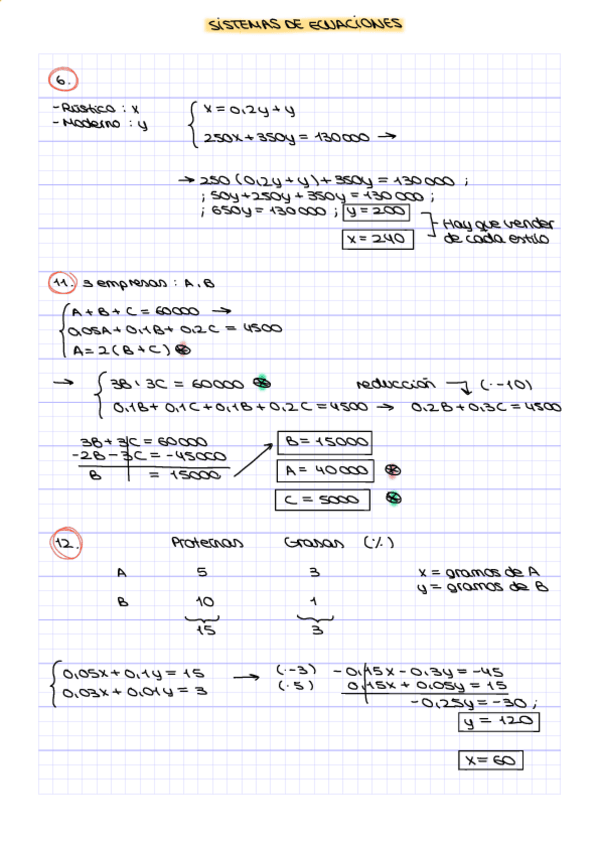 SISTEMAS DE ECUACIONES
6.
- Rústico : x
- Moderno : y
x = 0,2y + y
250x + 350y = 130000 →
→ 250 (0,2y + y) + 350y = 130000 ;
; 50y + 250y + 350y = 130000 ;
; 650y = 130000 ; y = 200
x = 240
Hay que vender
de cada estilo
11. 3 empresas : A, B
A + B + C = 60000 →
0,05A + 0,1B + 0,2C = 4500
A = 2(B + C) *
→ 3B + 3C = 60000 * reducción (· -10)
0,1B + 0,1C + 0,1B + 0,2C = 4500 → 0,2B + 0,3C = 4500
3B + 3C = 60000
-2B - 3C = -45000
B = 15000
B = 15000
A = 40000 *
C = 5000 *
12. Proteínas Grasas (%)
A 5 3
B 10 1
15 3
x = gramos de A
y = gramos de B
0,05x + 0,1y = 15 → (· -3) - 0,15x - 0,3y = -45
0,03x + 0,01y = 3 (· 5) 0,15x + 0,05y = 15
-0,25y = -30 ;
y = 120
x = 60